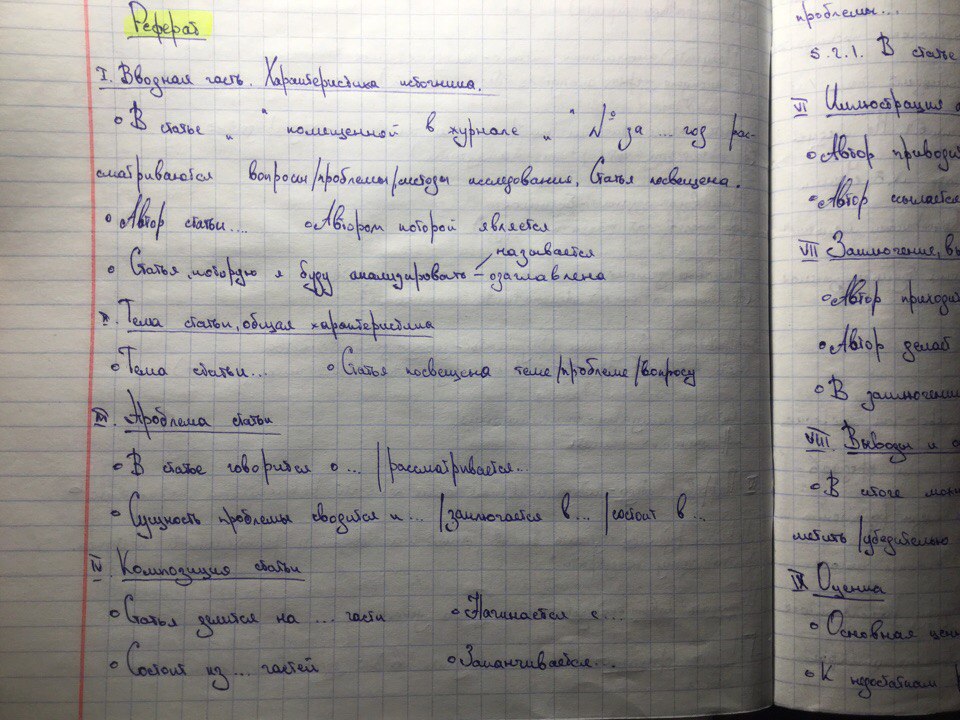 Реферат
I. Вводная часть. Характеристика источника.
В статье „ “ помещенной в журнале „ “ № за ... год рас-
сматриваются вопросы/проблемы/методы исследования. Статья посвещена.
Автор статьи... Автором которой является
называется
Статья, которую я буду анализировать – озаглавлена
II. Тема статьи, общая характеристика
Тема статьи... Статья посвещена теме/проблеме/вопросу
III. Проблема статьи
В статье говорится о... /рассматривается...
Сущность проблемы сводится к ... /заключается в... /состоит в...
IV. Композиция статьи
Статья делится на ... части Начинается с...
Состоит из ... частей Заканчивается...
проблемы...
5.2.1. В статье
VI Иллюстрация
Автор приводит
Автор ссылается
VII Заключение, вы
Автор приходит
Автор делает
В заключении
VIII. Выводы и
В итоге мож
метить /убедительно
IX Оценка
Основная цен
К недостаткам